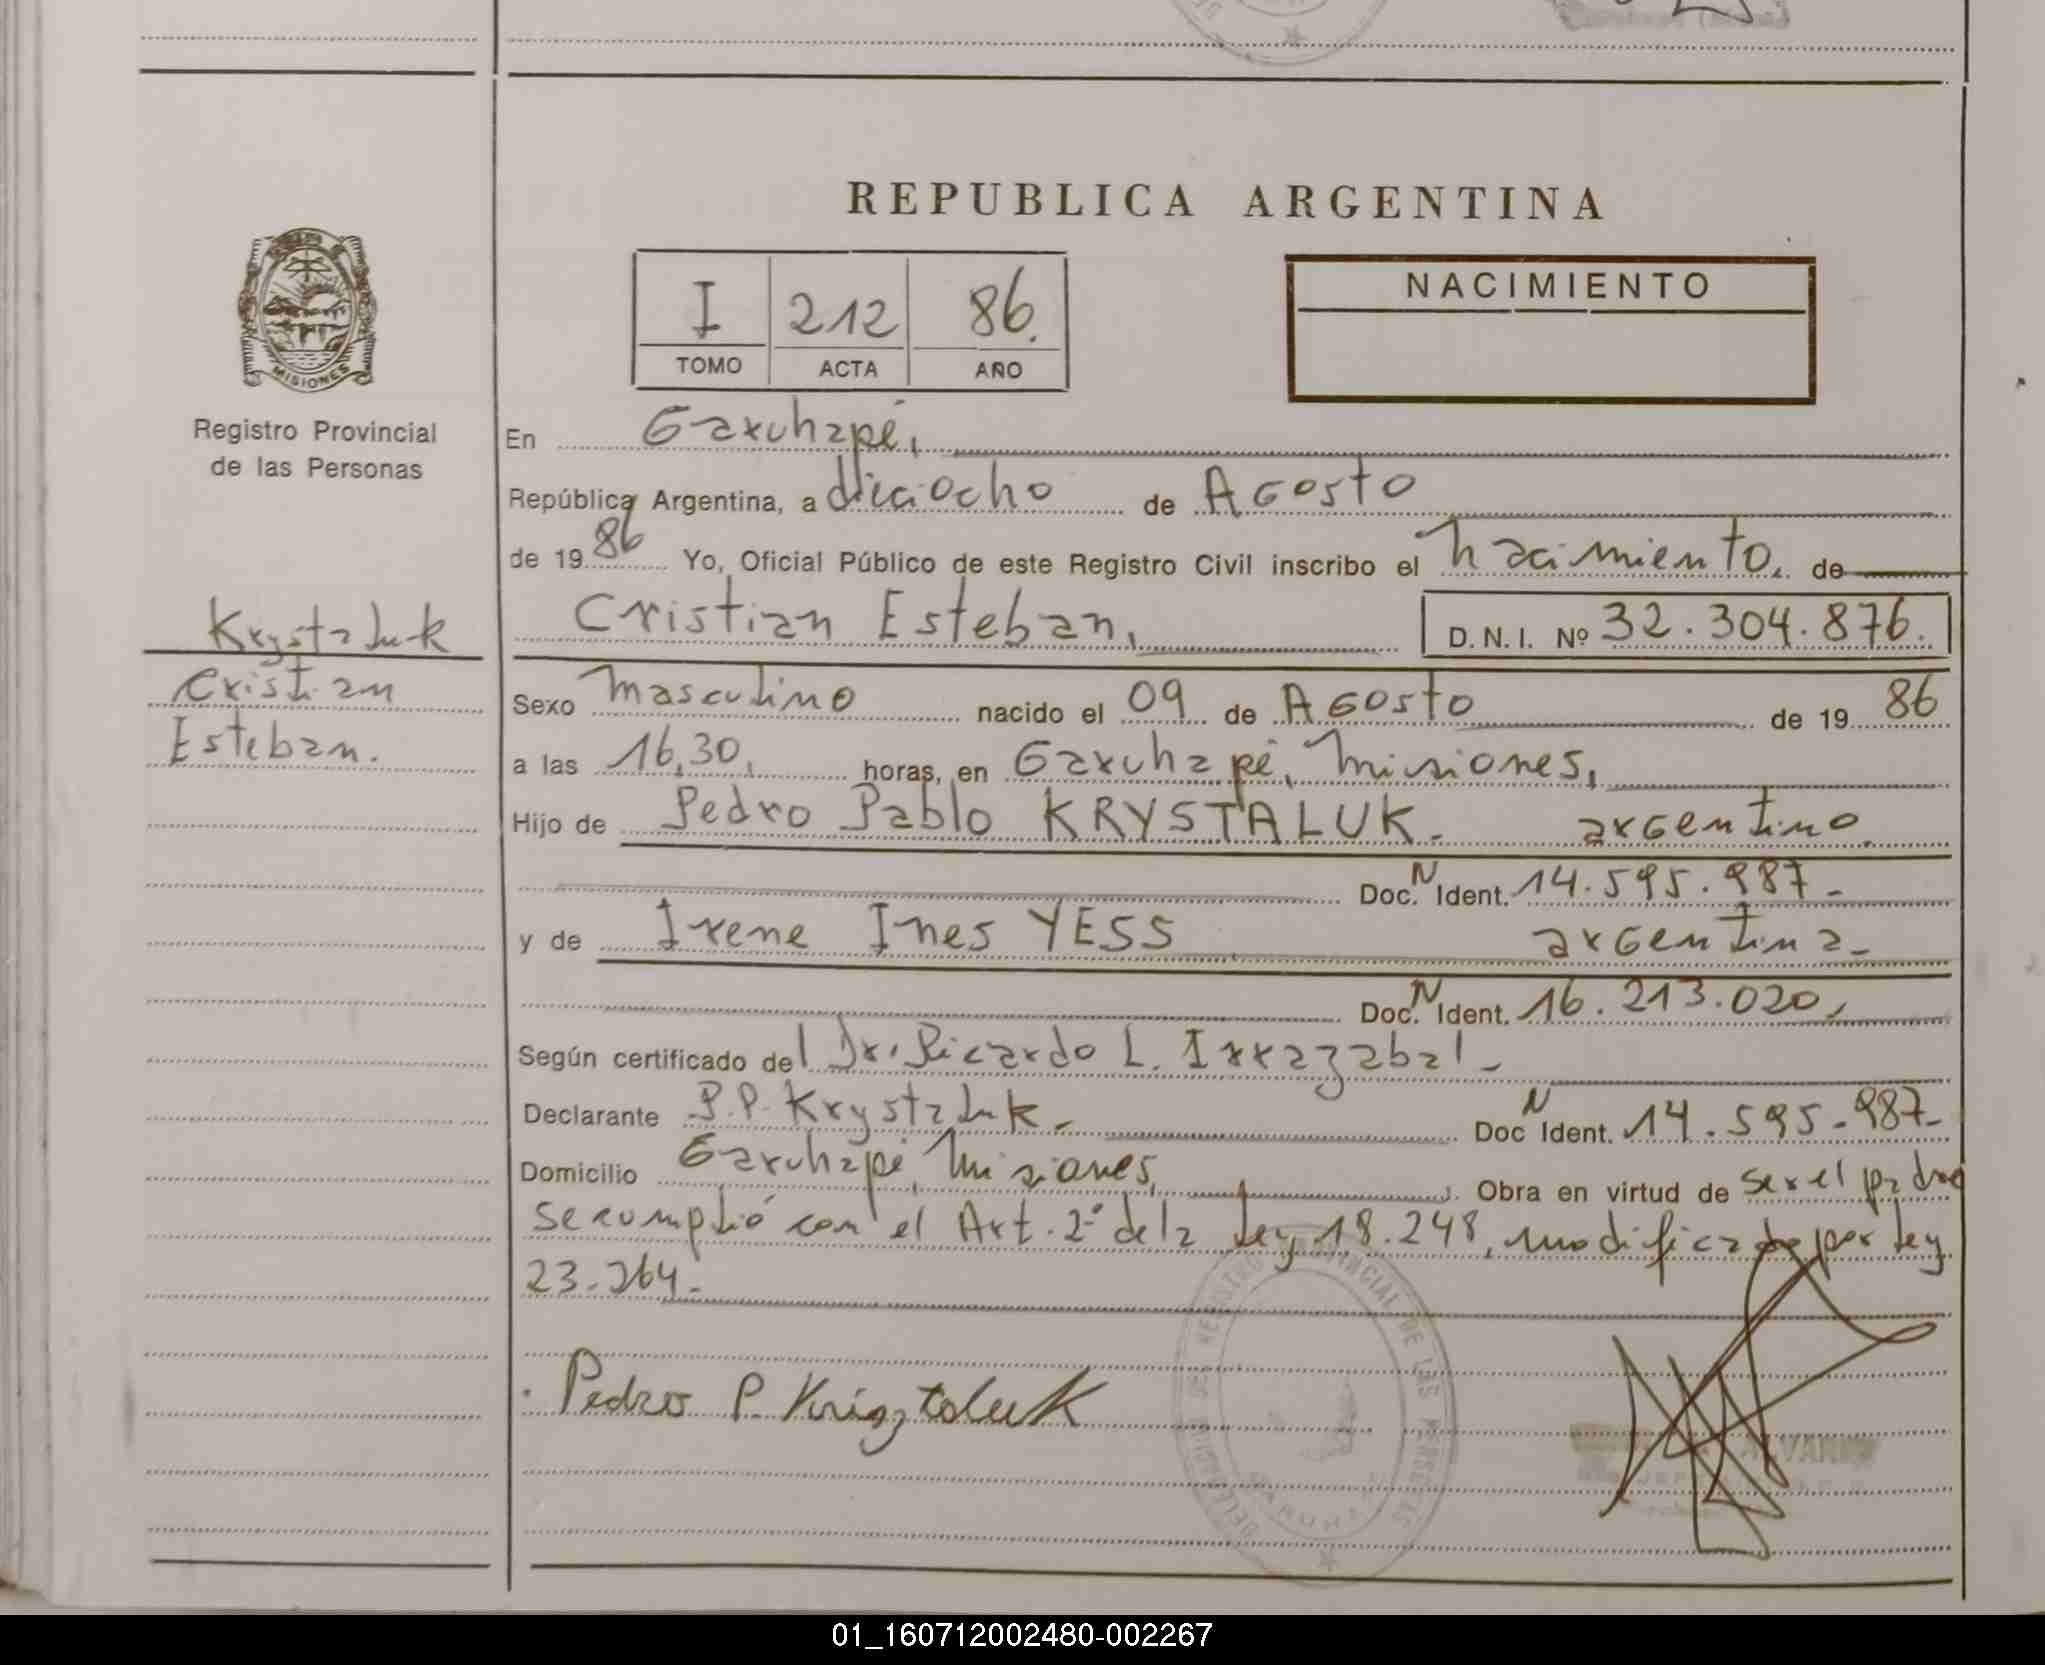 REPUBLICA ARGENTINA
MISIONES
Registro Provincial
de las Personas
I 212 86.
TOMO ACTA AÑO
NACIMIENTO
En Garuhapé,
República Argentina, a dieciocho de Agosto
de 1986 Yo, Oficial Público de este Registro Civil inscribo el nacimiento. de
Krystaluk
Cristian
Esteban.
Cristian Esteban, D.N.I. Nº 32.304.876.
Sexo masculino nacido el 09 de Agosto de 1986
a las 16,30, horas, en Garuhapé, Misiones,
Hijo de Pedro Pablo KRYSTALUK. argentino.
Doc. N Ident. 14.595.987-
y de Irene Ines YESS argentina-
Doc. N Ident. 16.213.020,
Según certificado del Dr. Ricardo L. Irrazabal-
Declarante P.P. Krystaluk- Doc N Ident. 14.595.987-
Domicilio Garuhapé, Misiones, Obra en virtud de ser el padre
se cumplió con el Art. 2º de la Ley 18.248, modificada por Ley
23.264-
Pedro P. Krigztaluk
01_160712002480-002267